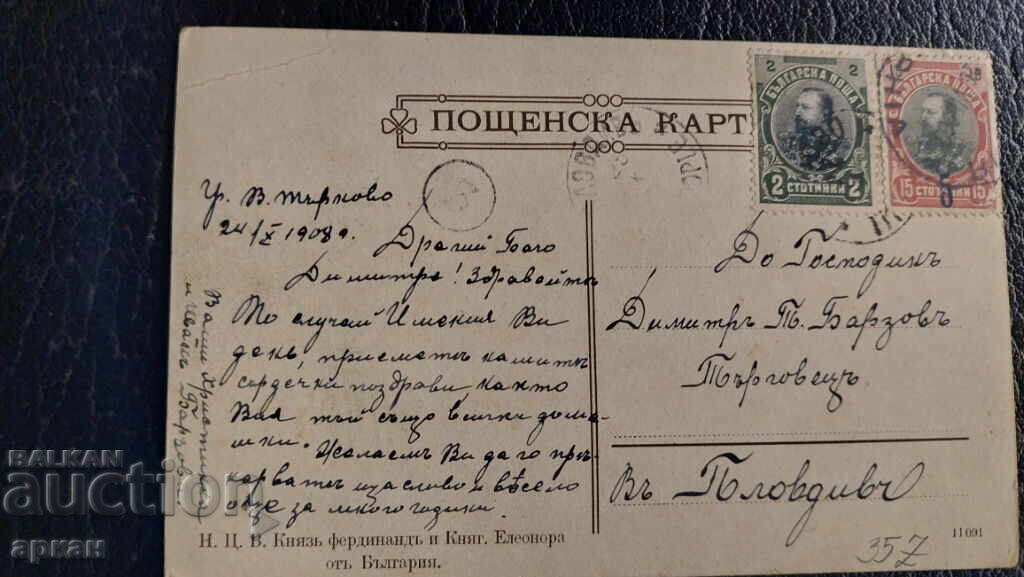 ПОЩЕНСКА КАРТ
2 2
БЪЛГАРСКА ПОЩА
2 СТОТИНКИ 2
БЪЛГАРСКА ПОЩА
15 СТОТИНКИ 15
Гр. В. Търново
24/X 1908 г.
Драгий Бачо
Димитре! Здравейте
По случай Имения Ви
день, приемете нашите
сърдечни поздрави както
Вия тъй също всички дома-
шни. Желаемъ Ви да го пре-
карвате щасливо и вѣсело
още за много години.
Ваши Христина
и Иванъ Барзови
До Господинъ
Димитръ Т. Барзовъ
Търговецъ
Въ Пловдивъ
Н. Ц. В. Князь фердинандъ и Княг. Елеонора
отъ България.
11091
357
BALKAN
auction
аркан